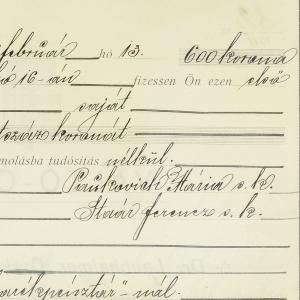 február hó 13. 600 korona
16-án fizessen Ön ezen első
saját
száz koronát
számolásba tudósítás nélkül.
Paukovich Mária s. k.
Stoár Ferencz s. k.
takarékpénztár"-nál.